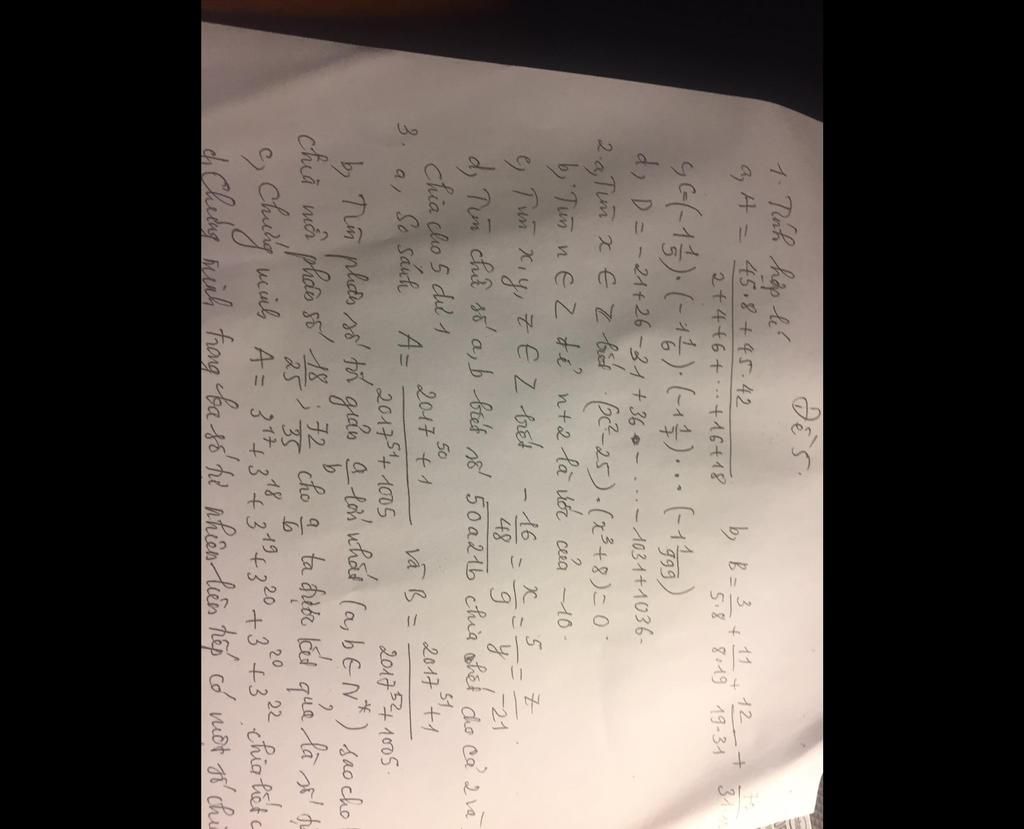 Đề 5.
1. Tính hợp lí
a, A = (45.8 + 45.42)/(2+4+6+...+16+18) b, B = 3/(5.8) + 11/(8.19) + 12/(19.31) +
c, C=(-1 1/5).(-1 1/6).(-1 1/7)...(-1 1/999)
d, D = -21+26-31+36-...-1031+1036.
2. a, Tìm x ∈ Z biết. (x²-25).(x³+8)=0.
b, Tìm n ∈ Z để n+2 là ước của -10.
c, Tìm x, y, z ∈ Z biết -16/48 = x/9 = 5/y = z/-21.
d, Tìm chữ số a, b biết số 50a21b chia hết cho cả 2 và
chia cho 5 dư 1
3. a, So sánh A = (2017^50+1)/(2017^51+1005) và B = (2017^51+1)/(2017^52+1005).
b, Tìm phân số tối giản a/b lớn nhất (a, b ∈ N*) sao cho
chia mỗi phân số 18/25; 72/35 cho a/b ta được kết quả là số
c, Chứng minh A = 3^17+3^18+3^19+3^20+3^20+3^22 chia hết
d, Chứng minh trong ba số tự nhiên liên tiếp có một số